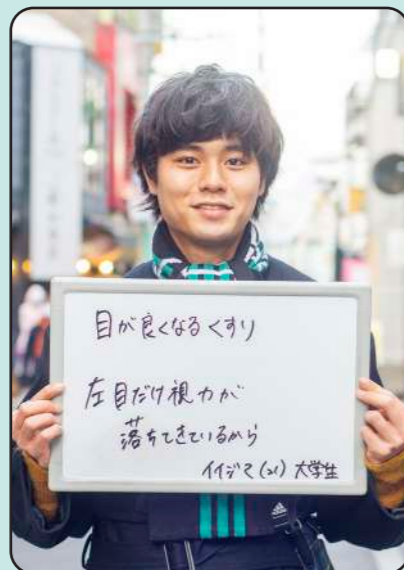 目が良くなるくすり
左目だけ視力が
落ちてきているから
イイジマ(21) 大学生
adidas